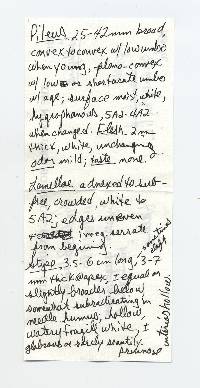 Pileus 25-42mm broad,
convex to convex w/ low umbo
when young, plano-convex
w/ low or short acute umbo
w/ age; surface moist, white,
hygrophanous, 5A2-4A2
when changed. Flesh 2mm
thick, white, unchanging
odor mild; taste none.
Lamellae adnexed to sub-
free, crowded, white to
5A2; edges uneven
irreg. serrate
from beginning.
Stipe 3.5-6 cm long, 3-7
mm thick @ apex, ± equal or
slightly broader below
somewhat subradicating in
needle humus, hollow,
watery fragile white, ±
glabrous or
pruinose
interior hollow.